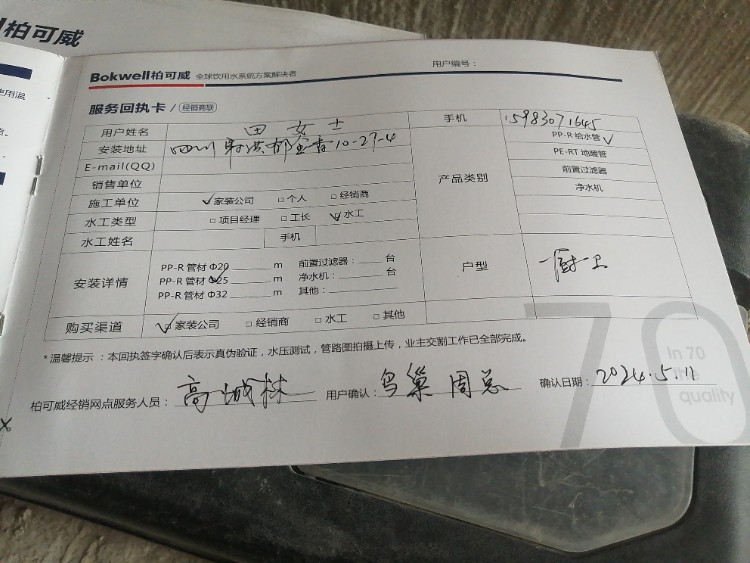 柏可威
使用温
Bokwell柏可威 全球饮用水系统方案解决者
用户编号：
服务回执卡/经销商联
用户姓名 田女士 手机 15983071645
安装地址 四川 10-27-4
E-mail(QQ)
销售单位
产品类别
PP-R 给水管 √
PE-RT 地暖管
前置过滤器
净水机
施工单位 √家装公司 □个人 □经销商
水工类型 □项目经理 □工长 √水工
水工姓名 手机
安装详情
PP-R 管材 Φ20 m 前置过滤器： 台
PP-R 管材 Φ25 m 净水机： 台
PP-R 管材 Φ32 m 其他：
户型 一厨一卫
购买渠道 √家装公司 □经销商 □水工 □其他
*温馨提示：本回执签字确认后表示真伪验证，水压测试，管路图拍摄上传，业主交割工作已全部完成。
柏可威经销网点服务人员：高城林 用户确认：鸟巢 周总 确认日期：2024.5.11
70
In 70
the
quality